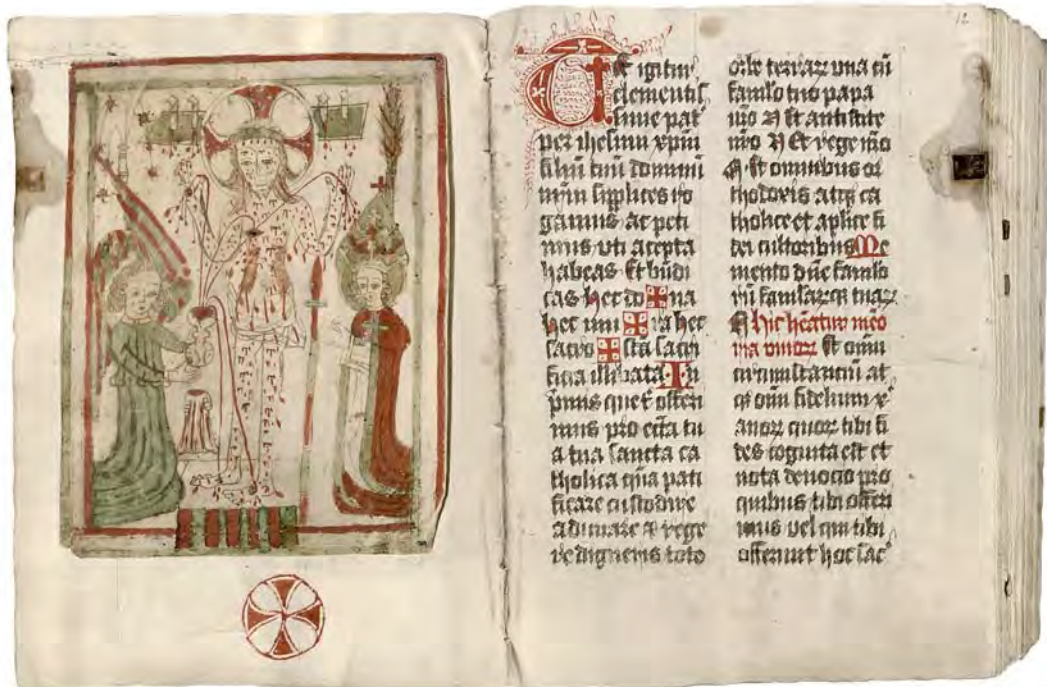 12
Te igitur
clementis
sime pat
per ihesum xpm
filiu tuu dominu
nrm supplices ro
gamus ac peti
mus vti acepta
habeas Et bndi
cas hec do na
hec mu ra hec
sacro sta sacri
ficia illibata In
pmis que t offeri
mus pro ecca tu
a tua sancta ca
tholica qua pati
ficare custodire
adunare rege
re digneris toto
orbe terrarz vna cu
famlo tuo papa
nro N Et antistite
nro N Et rege nro
N Et omnibus or
thodoxis atqz ca
tholice et aplice fi
dei cultoribus Me
mento dne famlo
ru famlarz qz tuarz
N hic heatur meo
ria viuorz Et omi
circumstanciu at
qz omi fidelium x
anorz quorz tibi fi
des cognita est et
nota deuocio pro
quibus tibi offeri
mus vel qui tibi
offerunt hoc sac